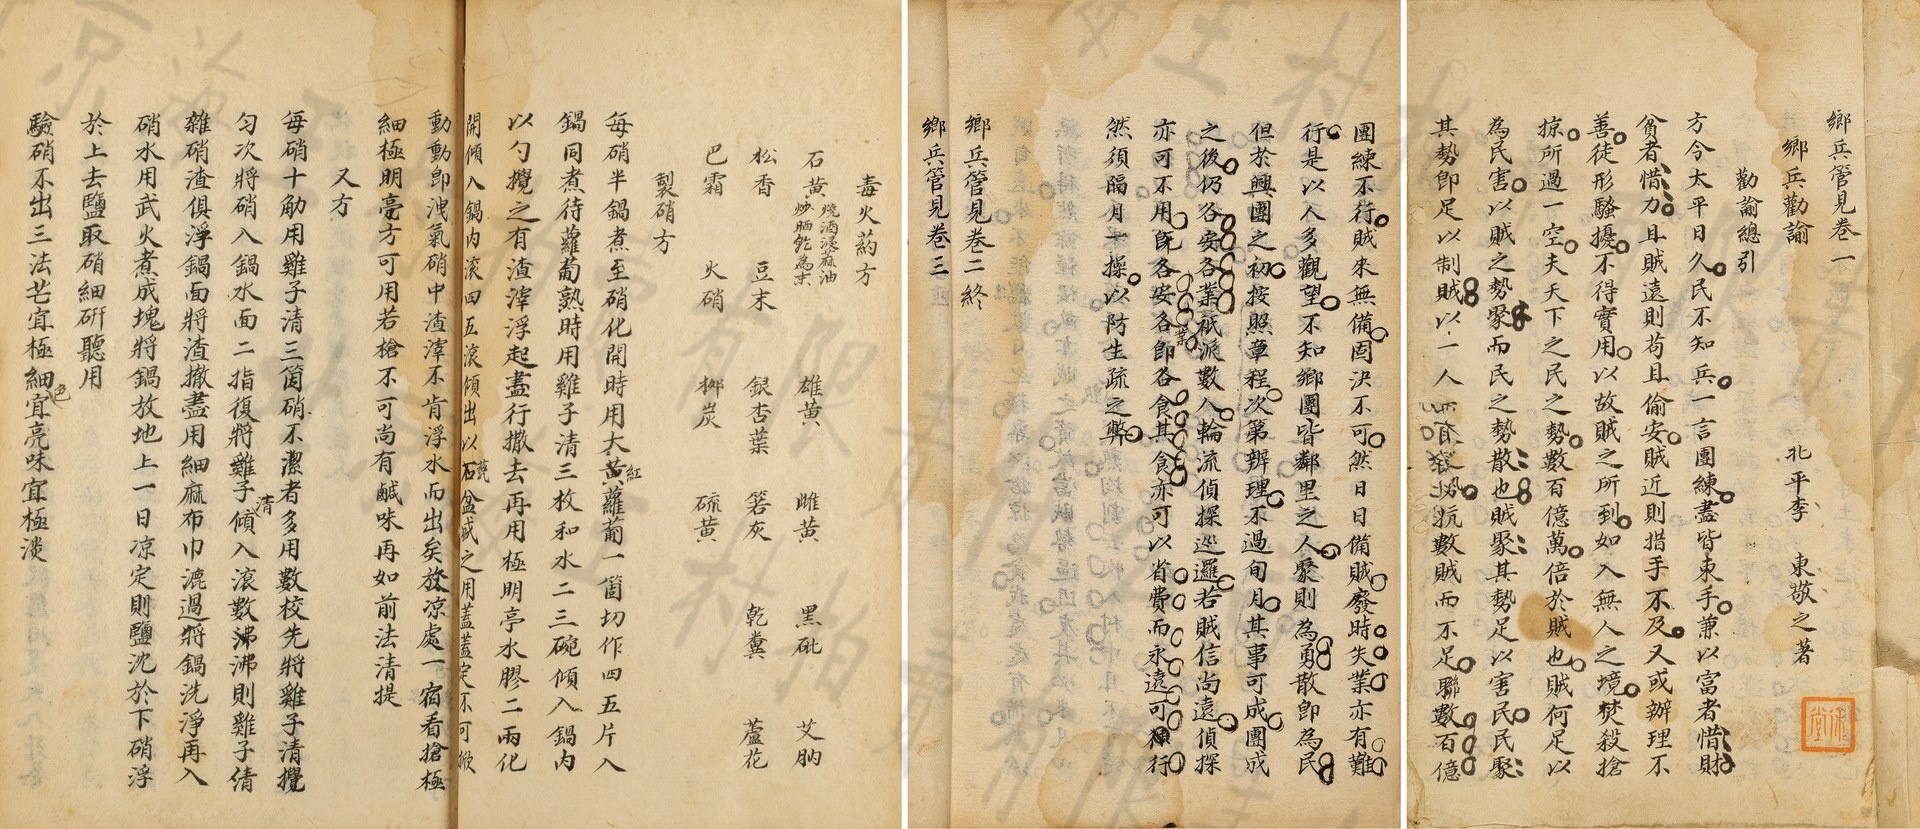 鄉兵管見卷一
鄉兵勸諭
北平李
東敬之著
勸諭總引
方今太平日久民不知兵一言團練盡皆束手兼以富者惜財
貧者惜力且賊遠則苟且偷安賊近則措手不及又或辦理不
善徒形騷擾不得實用以故賊之所到如入無人之境焚殺搶
掠所過一空夫天下之民之勢數百億萬倍於賊也賊何足以
為民害以賊之勢聚而民之勢散也賊聚其勢足以害民民聚
其勢即足以制賊以一人抗數賊而不足聯數百億
團練不行賊來無備固決不可然日日備賊廢時失業亦有難
行是以人多觀望不知鄉團皆鄰里之人聚則為勇散即為民
但於興團之初按照章程次第辨理不過旬月其事可成團成
之後仍各安各業祇派數人輪流偵探巡邏若賊信尚遠偵探
亦可不用既各安各業即各食其食亦可以省費而永遠可行
然須隔月一操以防生疏之弊
鄉兵管見卷二終
鄉兵管見卷三
毒火葯方
石黃燒酒浸麻油炒晒乾為末
雄黃
雌黃
黑砒
艾肭
松香
豆末
銀杏葉
箬灰
乾糞
蘆花
巴霜
火硝
柳炭
硫黃
製硝方
每硝半鍋煮至硝化開時用大紅蘿蔔一箇切作四五片入
鍋同煮待蘿蔔熟時用雞子清三枚和水二三碗傾入鍋內
以勺攪之有渣滓浮起盡行撒去再用極明亭水膠二兩化
開傾入鍋內滾四五滾傾出以瓷盆盛之用蓋蓋定不可掀
動動即洩氣硝中渣滓不肯浮水而出矣放凉處一宿看搶極
細極明亮方可用若槍不可尚有鹹味再如前法清提
又方
每硝十觔用雞子清三箇硝不潔者多用數校先將雞子清攪
勻次將硝入鍋水面二指復將雞子清傾入滾數沸沸則雞子倩
雜硝渣俱浮鍋面將渣撤盡用細麻布巾漉過將鍋洗淨再入
硝水用武火煮成塊將鍋放地上一日凉定則鹽沈於下硝浮
於上去鹽取硝細研聽用
驗硝不出三法芒宜極細色宜亮味宜極淡